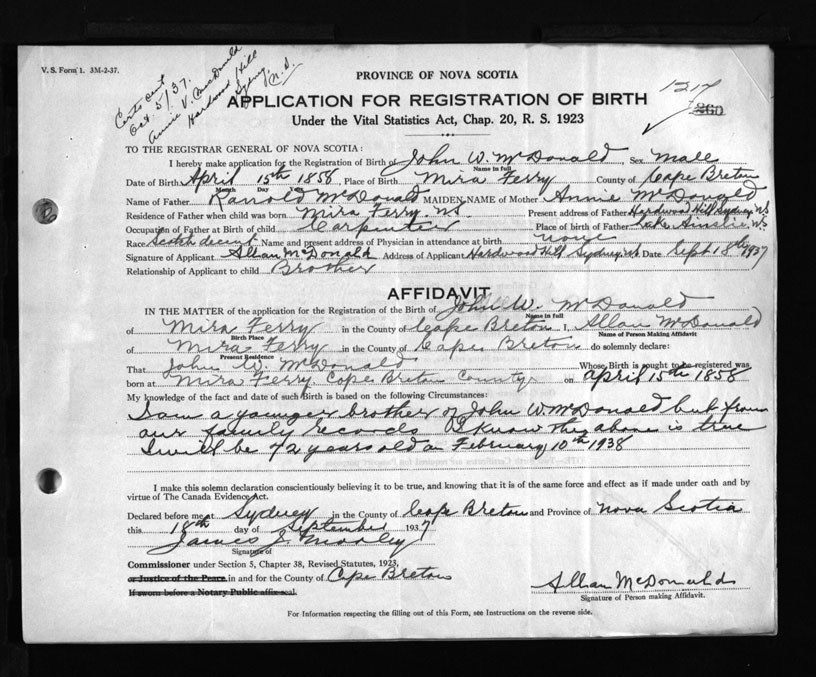 V. S. Form 1. 3M-2-37.
Certs cert
Oct. 5/37.
Annie V. McDonald
Hardwood Hill
Sydney,
N.S.
PROVINCE OF NOVA SCOTIA
1217
260
APPLICATION FOR REGISTRATION OF BIRTH
Under the Vital Statistics Act, Chap. 20, R. S. 1923
TO THE REGISTRAR GENERAL OF NOVA SCOTIA:
I hereby make application for the Registration of Birth of John W. McDonald, Sex Male
Name in full
Date of Birth April 15th 1858, Place of Birth Mira Ferry County of Cape Breton
Month Day
Name of Father McDonald MAIDEN NAME of Mother Annie McDonald
Residence of Father when child was born Mira Ferry. N.S. Present address of Father Hardwood Hill Sydney N.S.
Occupation of Father at Birth of child Carpenter Place of birth of Father Lake Ainslie N.S.
Race Scotch decent Name and present address of Physician in attendance at birth none
Signature of Applicant Allan McDonald Address of Applicant Hardwood Hill Sydney. N.S. Date Sept 18th 1937
Relationship of Applicant to child Brother
AFFIDAVIT
IN THE MATTER of the application for the Registration of the Birth of John W. McDonald
Name in full
of Mira Ferry in the County of Cape Breton I, Allan McDonald
Birth Place Name of Person Making Affidavit
of Mira Ferry in the County of Cape Breton do solemnly declare:
Present Residence
That John W. McDonald Whose Birth is sought to be registered was
born at Mira Ferry. Cape Breton County on April 15th 1858
My knowledge of the fact and date of such Birth is based on the following Circumstances:
I am a younger brother of John W. McDonald but from
our family records I know the above is true
I will be 72 years old on February 10th 1938
I make this solemn declaration conscientiously believing it to be true, and knowing that it is of the same force and effect as if made under oath and by
virtue of The Canada Evidence Act.
Declared before me at Sydney in the County of Cape Breton and Province of Nova Scotia
this 18th day of September 1937
James S.
Signature of
Commissioner under Section 5, Chapter 38, Revised Statutes, 1923,
or Justice of the Peace in and for the County of Cape Breton
If sworn before a Notary Public affix seal.
Allan McDonald
Signature of Person making Affidavit.
For Information respecting the filling out of this Form, see Instructions on the reverse side.